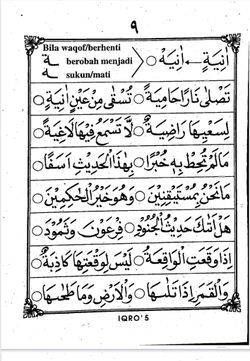 ٩
Bila waqof/berhenti
ـةٍ berobah menjadi
ـةْ sukun/mati
اٰنِيَةٍ ← اٰنِيَةْ ○
تَصْلٰى نَارًا حَامِيَةً ○ تُسْقٰى مِنْ عَيْنٍ اٰنِيَةٍ ○
لِسَعْيِهَا رَاضِيَةٌ ○ لَا تَسْمَعُ فِيْهَا لَاغِيَةً ○
مَا لَمْ تُحِطْ بِهٖ خُبْرًا ○ بِهٰذَا الْحَدِيْثِ اَسَفًا ○
مَا نَحْنُ بِمُسْتَيْقِنِيْنَ ○ وَهُوَ خَيْرُ الْحٰكِمِيْنَ ○
هَلْ اَتٰىكَ حَدِيْثُ الْجُنُوْدِ ○ فِرْعَوْنَ وَثَمُوْدَ ○
اِذَا وَقَعَتِ الْوَاقِعَةُ ○ لَيْسَ لِوَقْعَتِهَا كَاذِبَةٌ ○
وَالْقَمَرِ اِذَا تَلٰىهَا ○ وَالْاَرْضِ وَمَا طَحٰىهَا ○
IQRO' 5